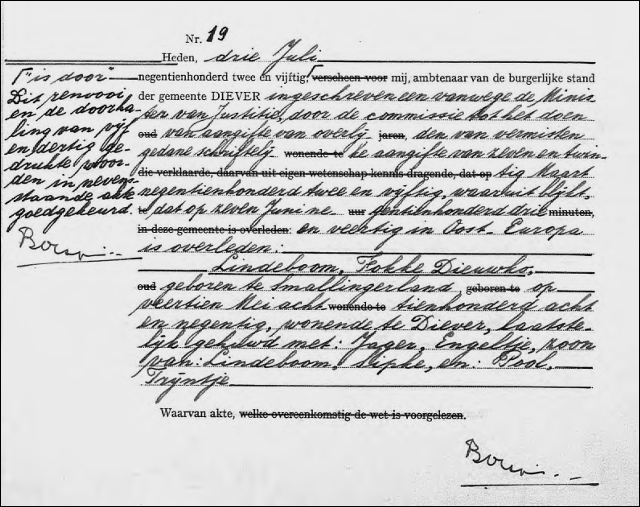 Nr. 19
Heden, drie Juli
negentienhonderd twee en vijftig, verscheen voor mij, ambtenaar van de burgerlijke stand
der gemeente DIEVER ingeschreven een vanwege de Minis
ter van Justitie, door de commissie tot het doen
oud van aangifte van overlij jaren, den van vermisten
gedane schriftelij wonende te ke aangifte van zeven en twin
die verklaarde, daarvan uit eigen wetenschap kennis dragende, dat op tig Maart
negentienhonderd twee en vijftig, waaruit blijkt,
te dat op zeven Juni ne uur gentienhonderd drie minuten,
in deze gemeente is overleden: en veertig in Oost-Europa
is overleden:
Lindeboom, Fokke Dieuwko,
oud geboren te Smallingerland, geboren te op
veertien Mei acht wonende te tienhonderd acht
en negentig, wonende te Diever, laatste-
lijk gehuwd met: Jager, Engeltje, zoon
van: Lindeboom, Sipke, en: Pool,
Trijntje
Waarvan akte, welke overeenkomstig de wet is voorgelezen.
"is door"
Dit renvooi
en de doorha
ling van vijf
en dertig ge-
drukte woor-
den in neven-
staande akte
goedgekeurd.